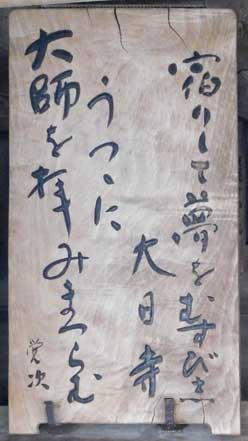 宿りして夢をむすびき
大日寺
うつゝに
大師を拝みまつらむ
覚次